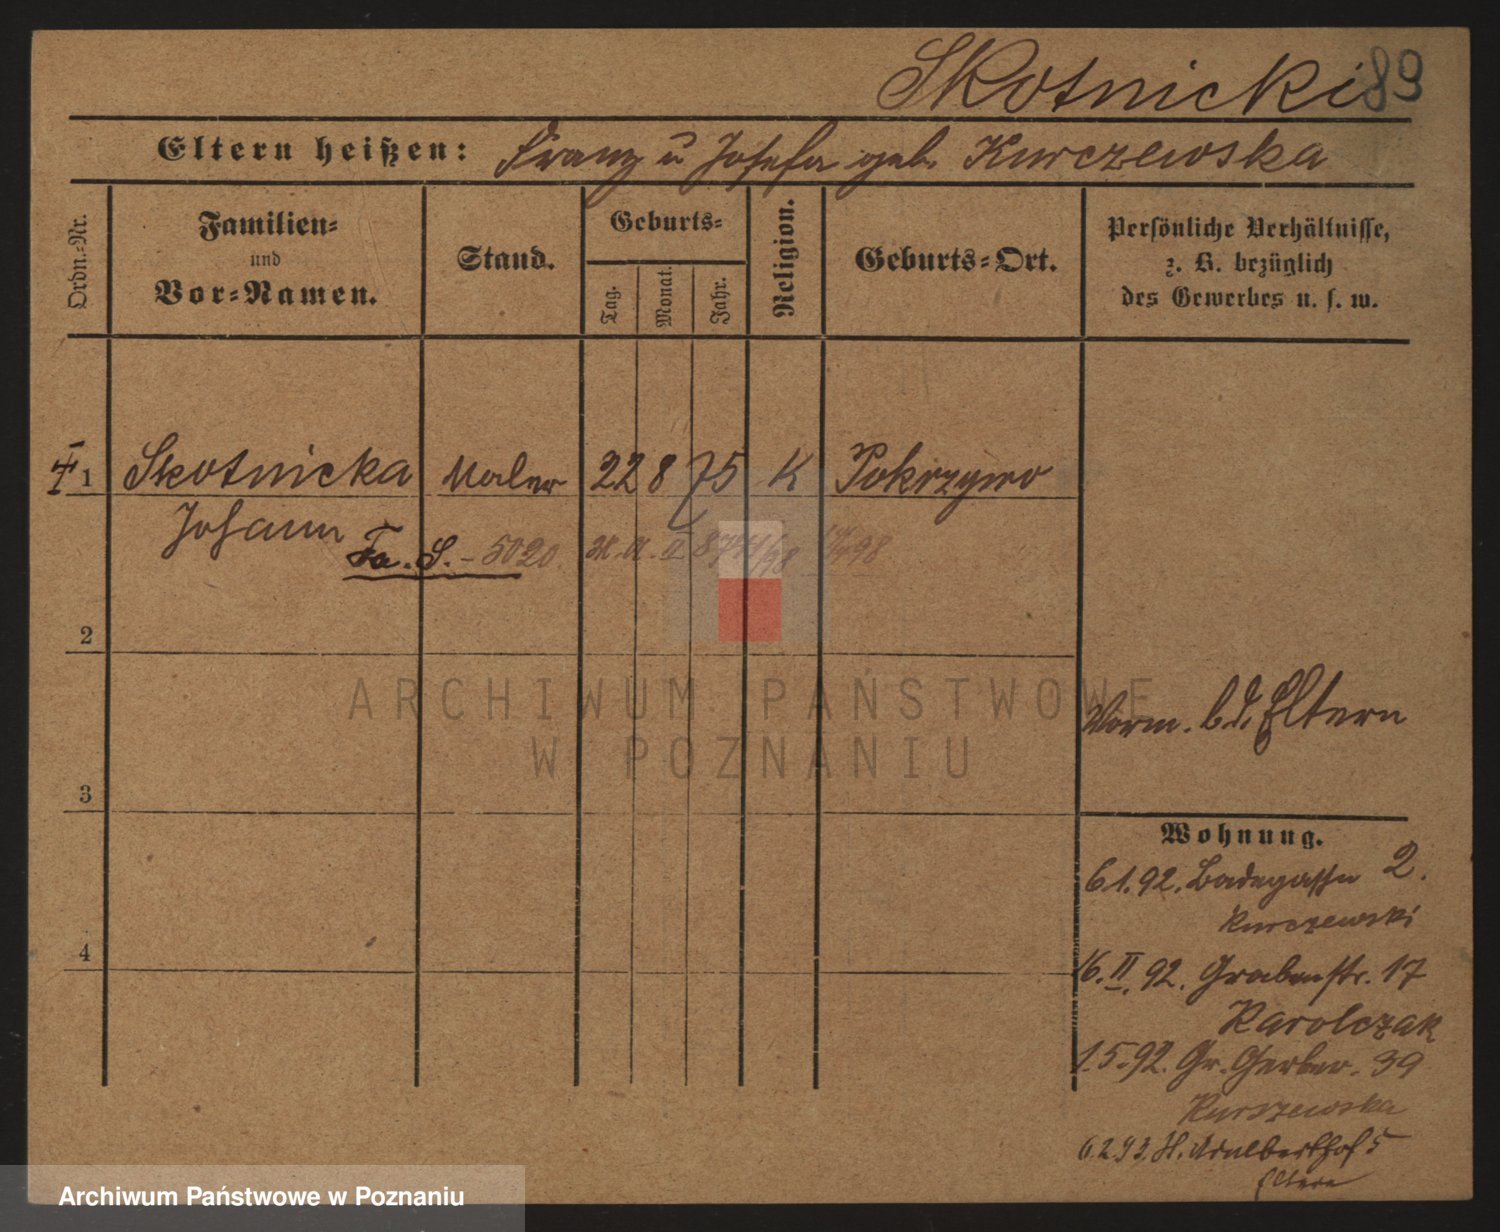 Skotnicki 89
Eltern heißen: Franz u Josefa geb. Kurczewska
Ordn.-Nr.
Familien-
und
Vor-Namen.
Stand.
Geburts-
Tag.
Monat.
Jahr.
Religion.
Geburts-Ort.
Persönliche Verhältnisse,
z. B. bezüglich
des Gewerbes u. s. w.
1 Skotnicka Maler 22 8 75 K Pokrzywo
Johann
Fa. S. - 5020
2
ARCHIWUM PAŃSTWOWE
W POZNANIU
Vorm. b. d. Eltern
3
Wohnung.
6.1.92. Badegasse 2.
Kurczewski
4
16. II. 92. Grabenstr. 17
Karolczak
1.5.92. Gr. Gerber. 39
Kurszewska
6.2.93. H. Adalberthof 5
Eltern
Archiwum Państwowe w Poznaniu